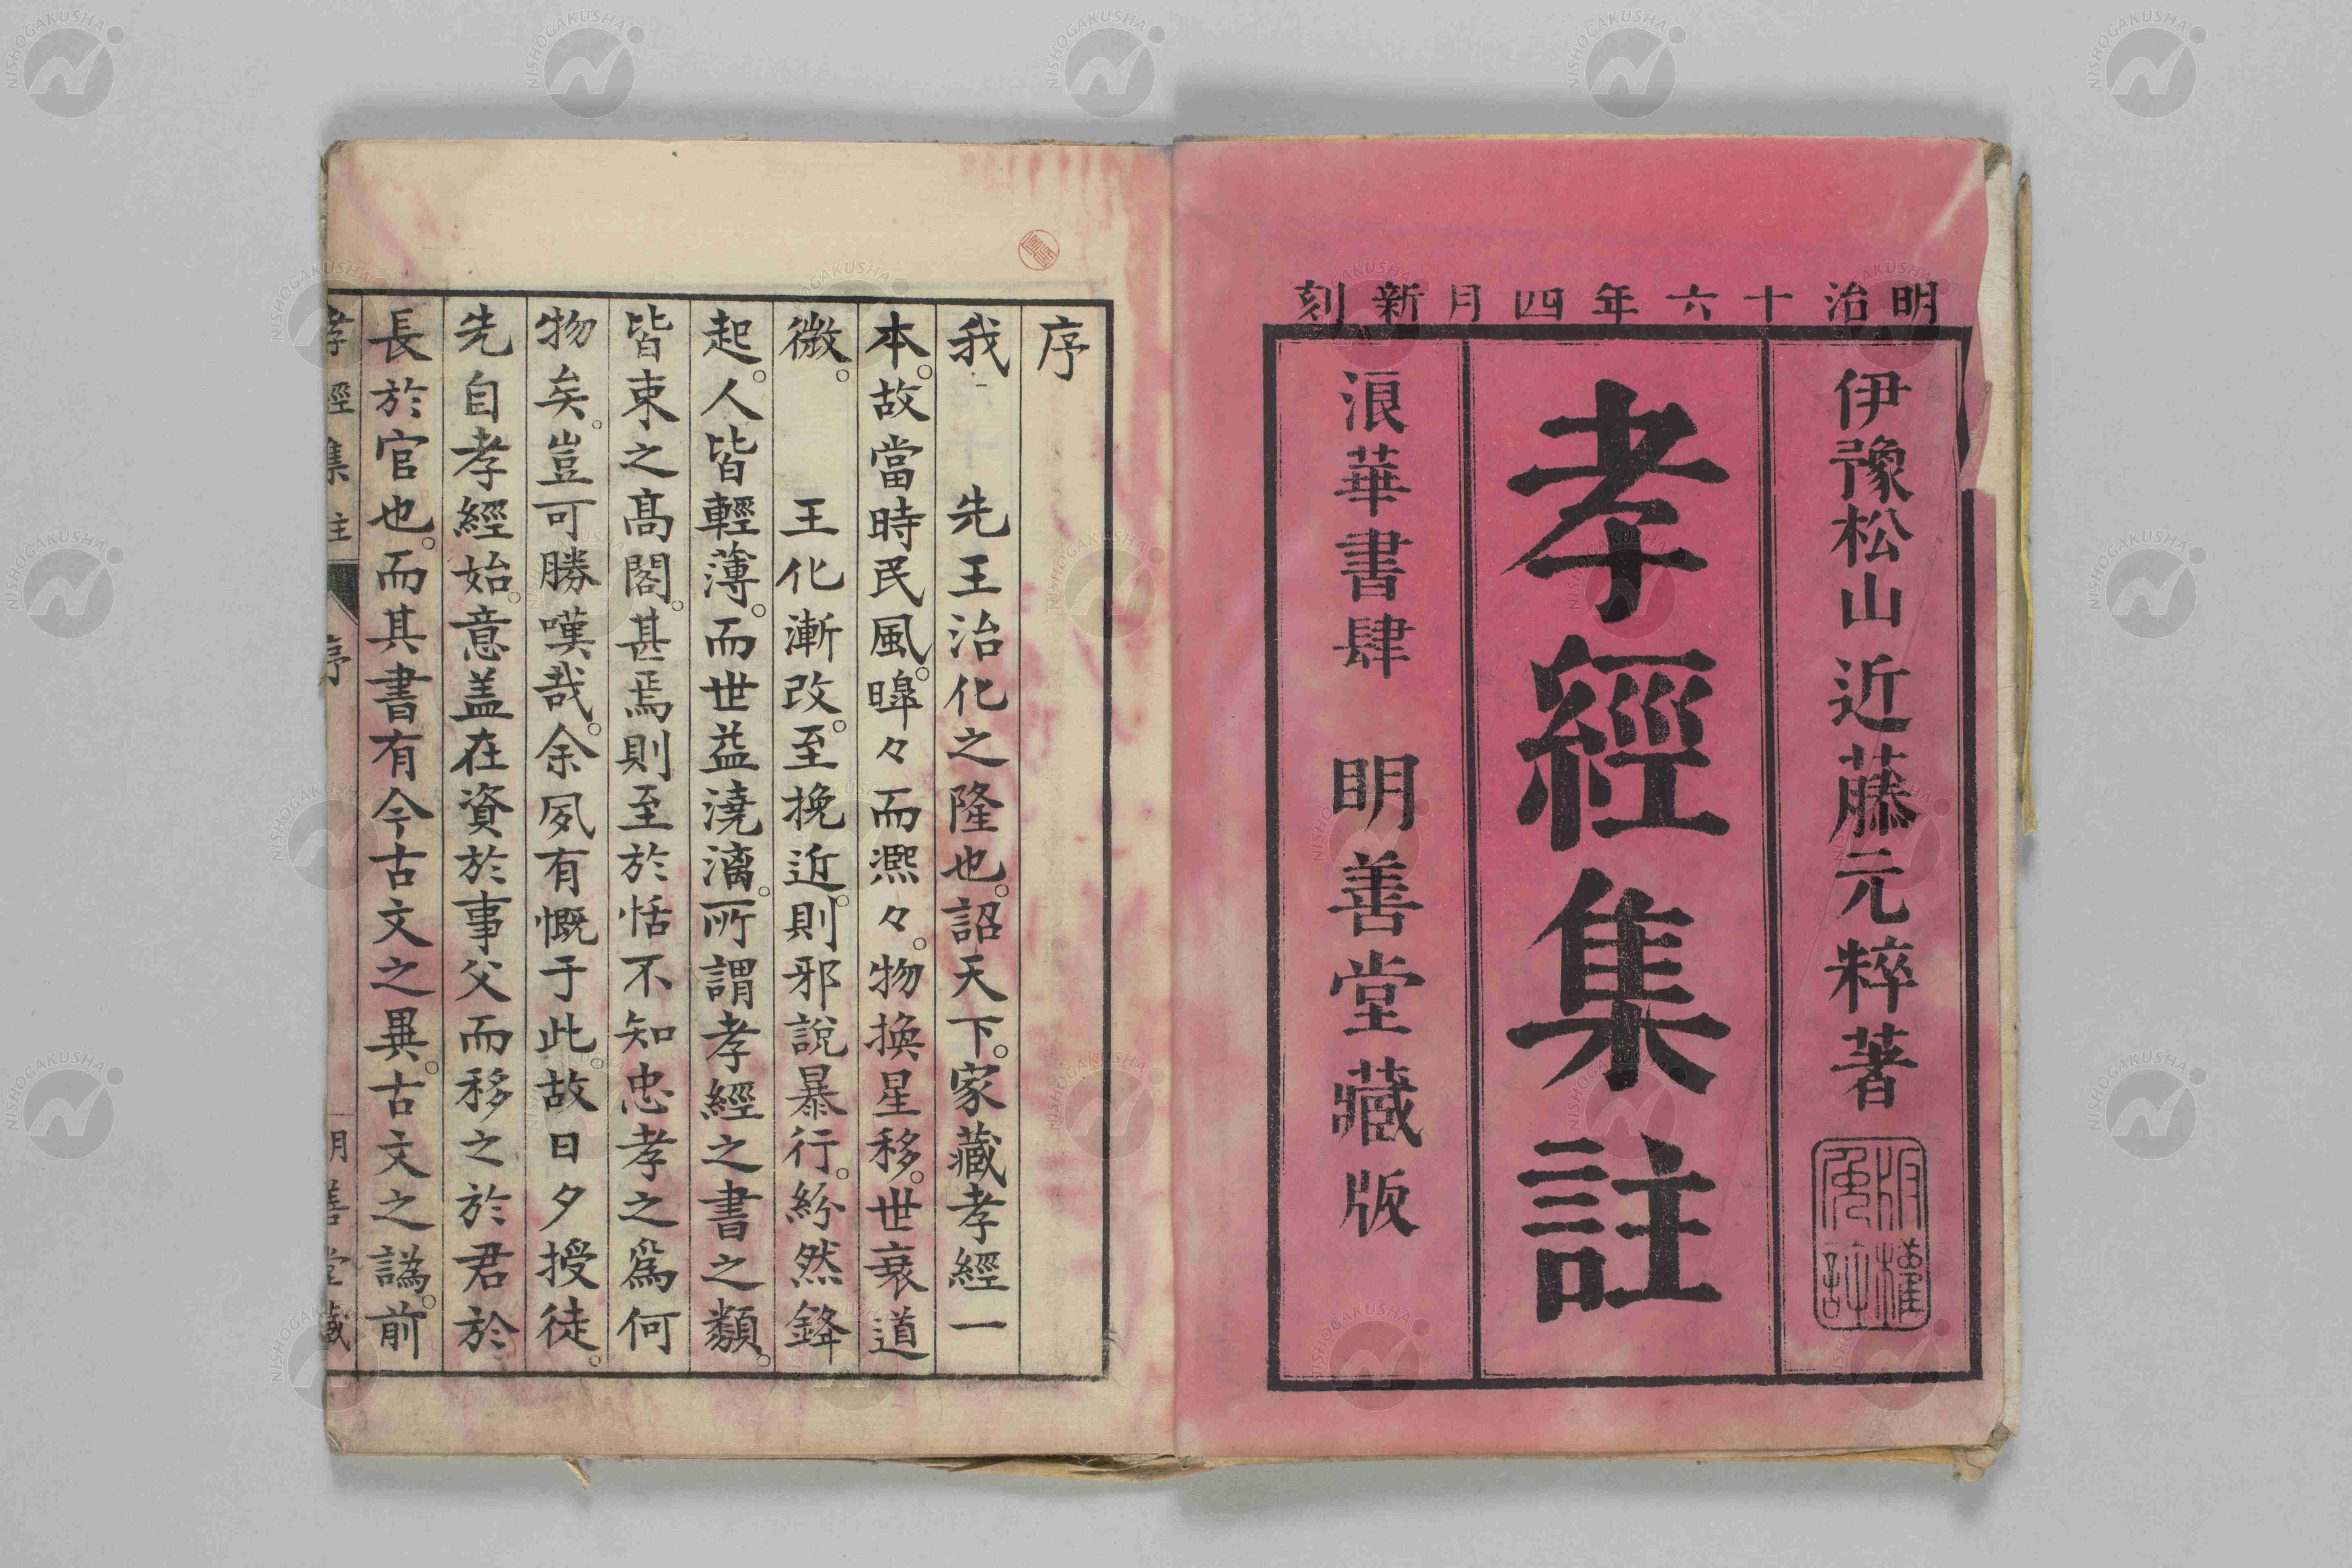 明治十六年四月新刻
伊豫松山 近藤元粹著
版權免許
孝經集註
浪華書肆 明善堂藏版
序
我 先王治化之隆也。詔天下。家藏孝經一
本。故當時民風。皞々而凞々。物換星移。世衰道
微。 王化漸改。至挽近。則邪說暴行。紛然鋒
起。人皆輕薄。而世益澆漓。所謂孝經之書之類。
皆束之高閣。甚焉則至於恬不知忠孝之爲何
物矣。豈可勝嘆哉。余夙有慨于此。故日夕授徒。
先自孝經始。意盖在資於事父而移之於君於
長於官也。而其書有今古文之異。古文之譌。前
孝經集註 序 明善堂藏
NISHOGAKUSHA